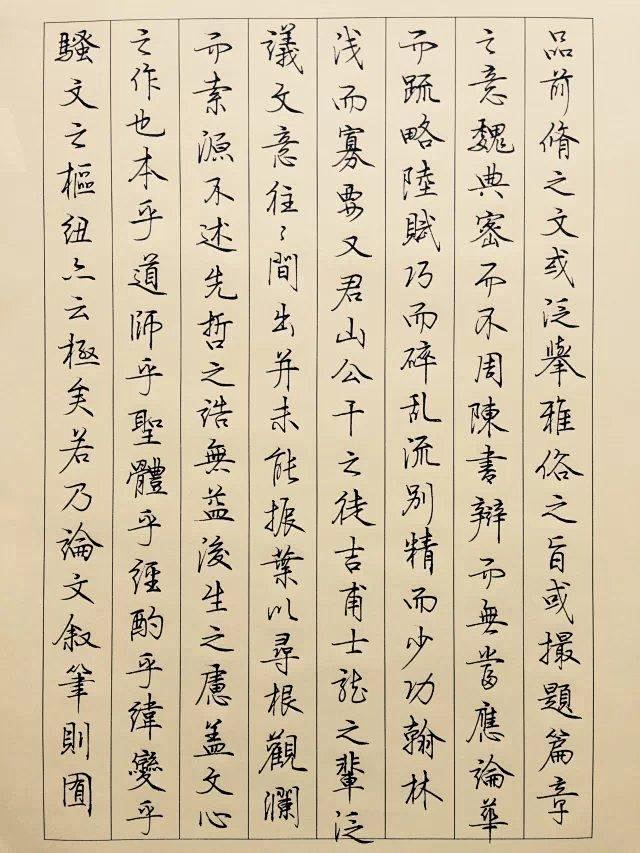 品前脩之文或泛舉雅俗之旨或撮題篇章
之意魏典密而不周陳書辯而無當應論華
而疏略陸賦巧而碎乱流别精而少功翰林
浅而寡要又君山公干之徒吉甫士龍之輩泛
議文意往〻間出并未能振葉以尋根觀瀾
而索源不述先哲之誥無益後生之慮盖文心
之作也本乎道師乎聖體乎經酌乎緯變乎
騷文之樞紐亦云極矣若乃論文叙筆則囿